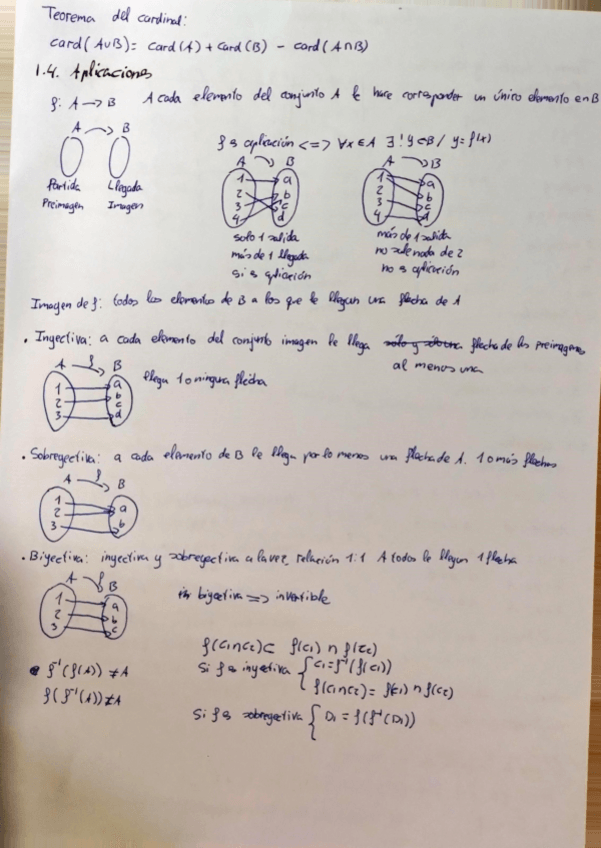 Teorema del cardinal:
card(A∪B) = card(A) + card(B) - card(A∩B)
1.4. Aplicaciones
f: A → B A cada elemento del conjunto A le hace corresponder un único elemento en B
A B
Partida Llegada
Preimagen Imagen
f es aplicación <=> ∀x∈A ∃! y∈B / y = f(x)
A B
1 a
2 b
3 c
4 d
solo 1 salida
más de 1 llegada
si es aplicación
A B
1 a
2 b
3 c
4 d
más de 1 salida
no sale nada de 2
no es aplicación
Imagen de f: todos los elementos de B a los que le llegan una flecha de A
. Inyectiva: a cada elemento del conjunto imagen le llega sólo y sólo una flecha de las preimagenes
al menos una
A f B
1 a
2 b
3 c
d
llega 1 o ninguna flecha
. Sobreyectiva: a cada elemento de B le llega por lo menos una flecha de A. 1 o más flechas
A f B
1 a
2
3 b
. Biyectiva: inyectiva y sobreyectiva a la vez, relación 1:1 A todos le llegan 1 flecha
A f B
1 a
2 b
3 c
biyectiva => invertible
f(C1∩C2) ⊂ f(C1) ∩ f(C2)
f⁻¹(f(A)) ≠ A
f(f⁻¹(A)) ≠ A
Si f es inyectiva { C1 = f⁻¹(f(C1))
f(C1∩C2) = f(C1) ∩ f(C2)
Si f es sobreyectiva { D1 = f(f⁻¹(D1))